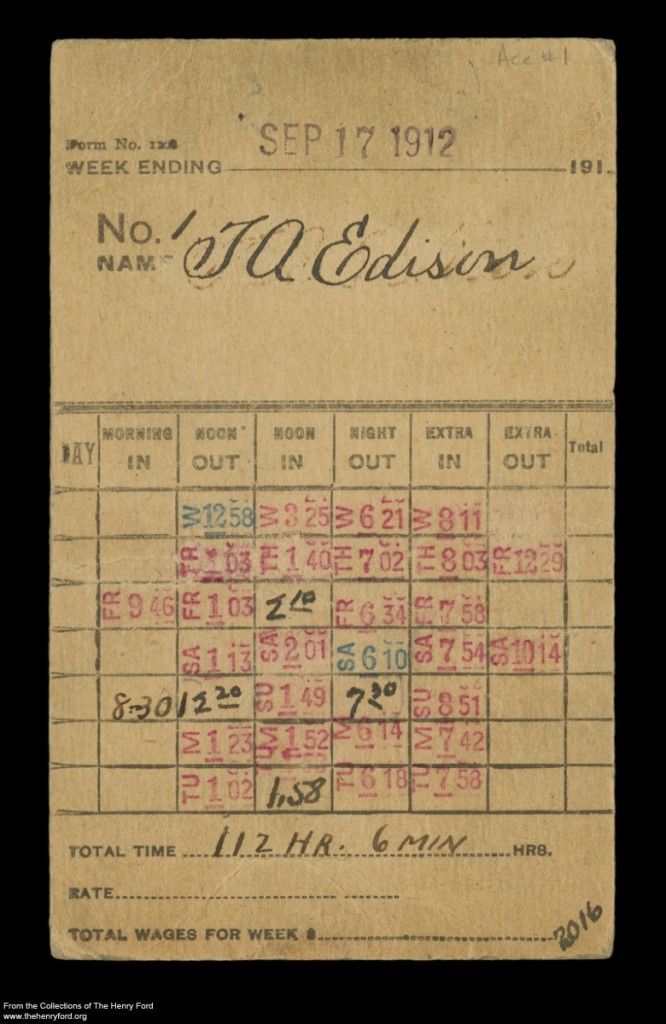 Acc #1
SEP 17 1912
Form No.
WEEK ENDING 191
No. 1
NAME T A Edison
DAY MORNING IN NOON OUT NOON IN NIGHT OUT EXTRA IN EXTRA OUT Total
W 12 58 W 3 25 W 6 21 W 8 11
FR 1 03 TH 1 40 TH 7 02 TH 8 03 FR 12 29
FR 9 46 FR 1 03 2 10 FR 6 34 FR 7 58
SA 1 13 SA 2 01 SA 6 10 SA 7 54 SA 10 14
8-30 12 20 SU 1 49 7 30 SU 8 51
M 1 23 M 1 52 M 6 14 M 7 42
TU 1 02 1,58 TU 6 18 TU 7 58
TOTAL TIME 112 HR. 6 MIN HRS.
RATE
TOTAL WAGES FOR WEEK $ 2016
From the Collections of The Henry Ford
www.thehenryford.org